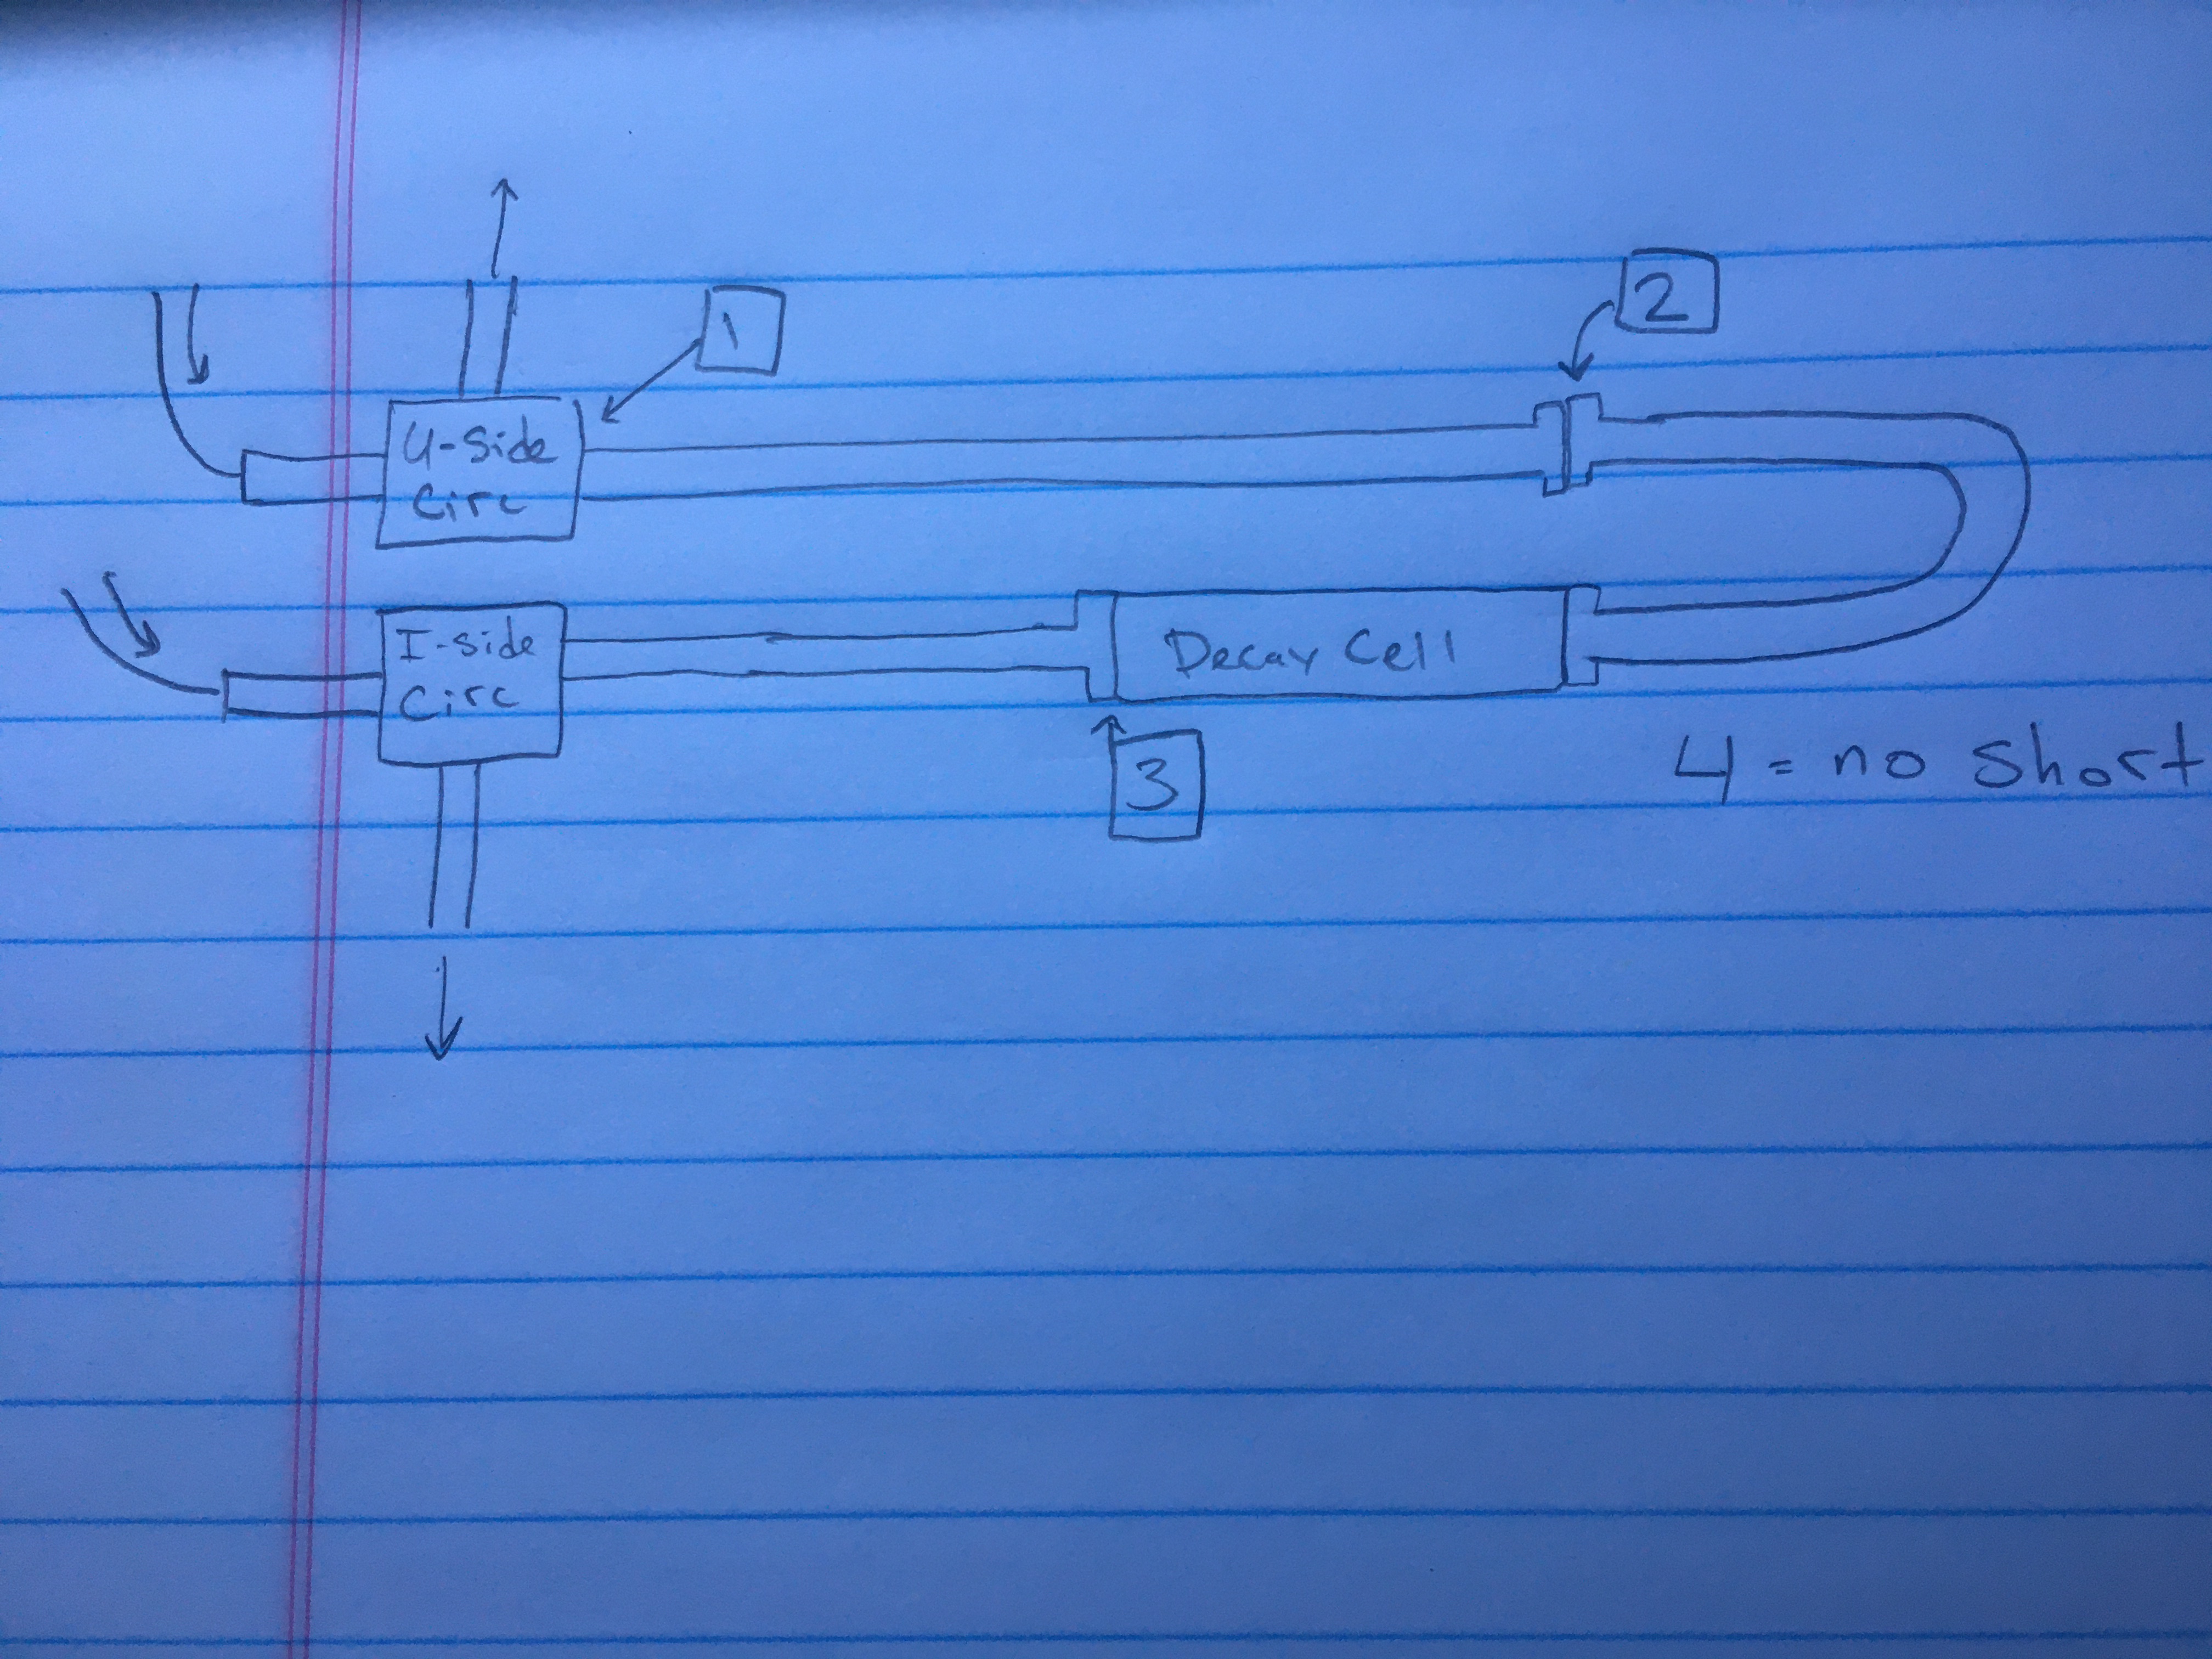 2
1
U-Side
Circ
I-side
Circ
Decay Cell
3
4 = no short